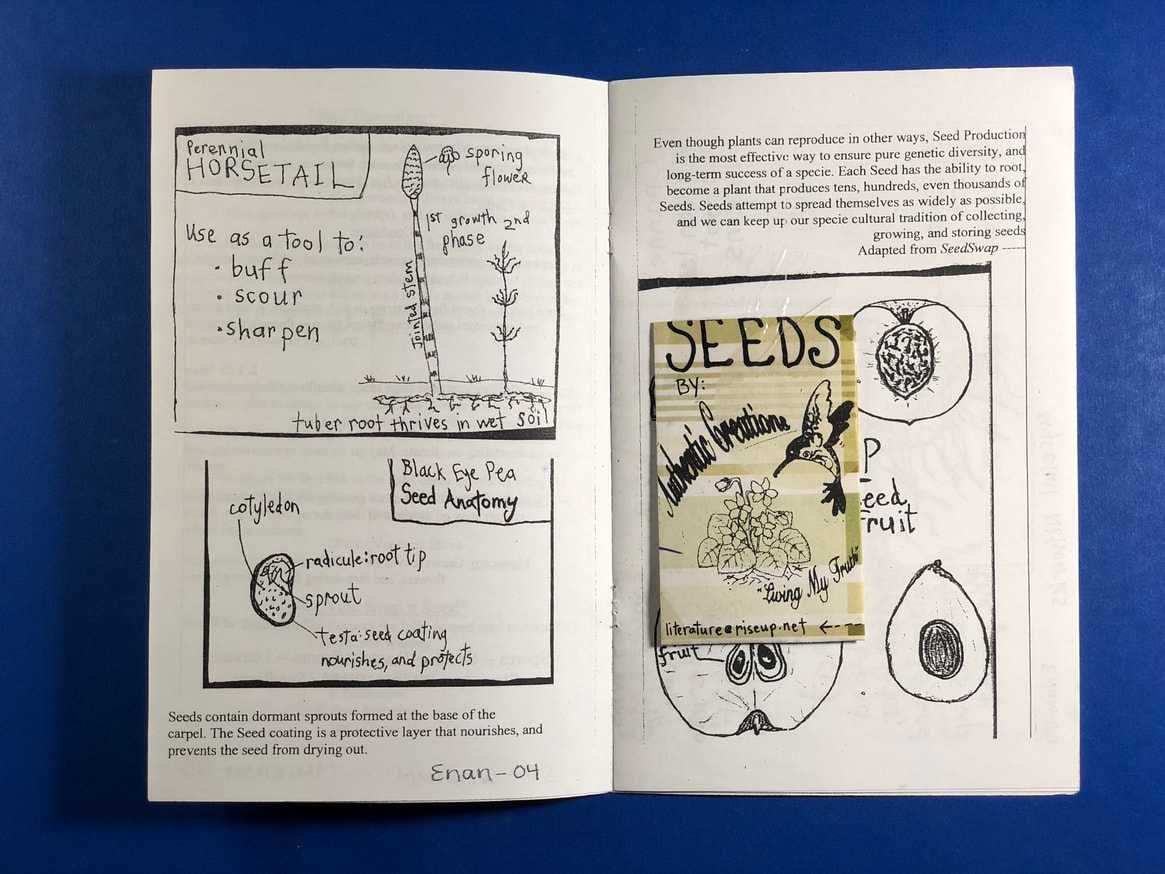 Perennial
HORSETAIL
sporing
flower
1st growth 2nd
phase
Use as a tool to:
• buff
• scour
• sharpen
Jointed stem
tuber root thrives in wet soil
Black Eye Pea
Seed Anatomy
cotyledon
radicule: root tip
sprout
testa: seed coating
nourishes, and protects
Seeds contain dormant sprouts formed at the base of the
carpel. The Seed coating is a protective layer that nourishes, and
prevents the seed from drying out.
Enan-04
Even though plants can reproduce in other ways, Seed Production
is the most effective way to ensure pure genetic diversity, and
long-term success of a specie. Each Seed has the ability to root,
become a plant that produces tens, hundreds, even thousands of
Seeds. Seeds attempt to spread themselves as widely as possible,
and we can keep up our specie cultural tradition of collecting,
growing, and storing seeds
Adapted from SeedSwap ----
SEEDS
BY:
Authentic Creations
"Living My Truth"
literature@riseup.net ←---
P
eed
fruit
fruit